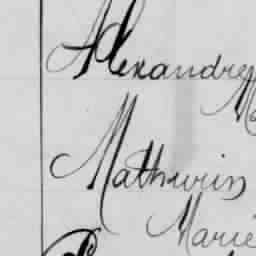 Alexandre
Mathurin
Marie